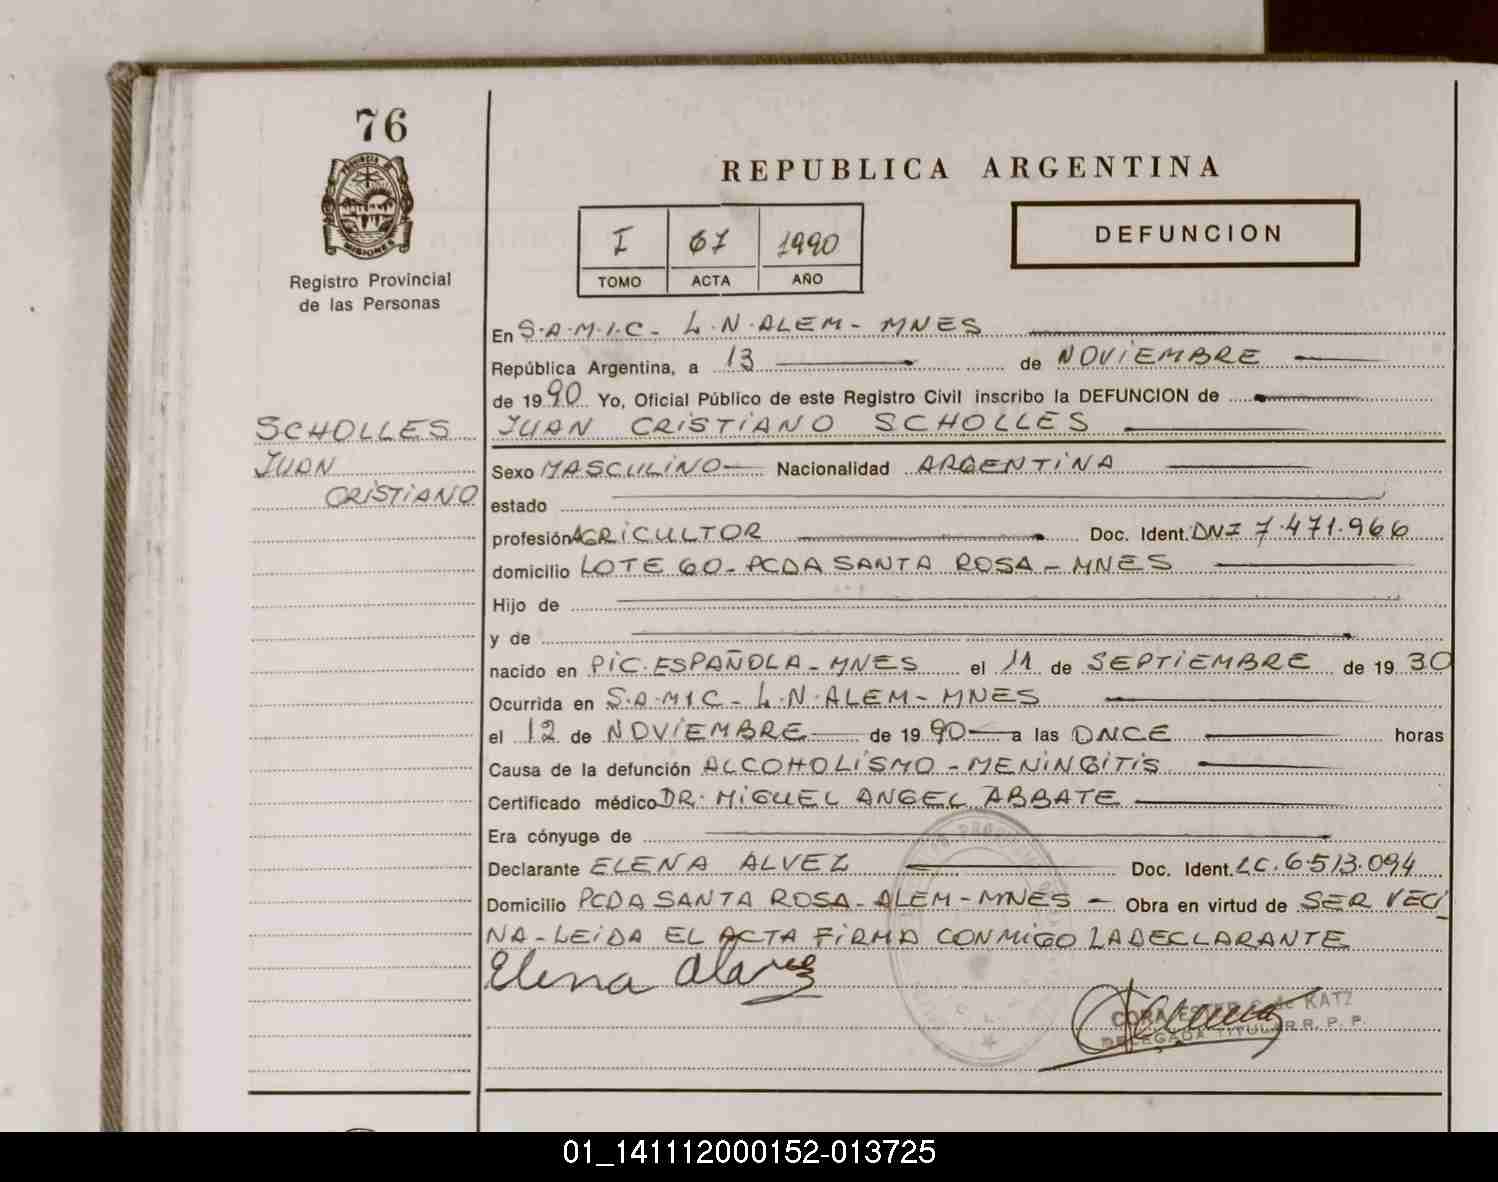 76
REPUBLICA ARGENTINA
PROVINCIA DE
MISIONES
Registro Provincial
de las Personas
I 67 1990
TOMO ACTA AÑO
DEFUNCION
En S.A.M.I.C - L.N.ALEM - MNES
República Argentina, a 13 de NOVIEMBRE
de 1990 Yo, Oficial Público de este Registro Civil inscribo la DEFUNCION de
SCHOLLES
JUAN
CRISTIANO
JUAN CRISTIANO SCHOLLES
Sexo MASCULINO Nacionalidad ARGENTINA
estado
profesión AGRICULTOR Doc. Ident. DNI 7.471.966
domicilio LOTE 60 - PCDA SANTA ROSA - MNES
Hijo de
y de
nacido en PIC. ESPAÑOLA - MNES el 11 de SEPTIEMBRE de 1930
Ocurrida en S.A.M.I.C - L.N.ALEM - MNES
el 12 de NOVIEMBRE de 1990 a las ONCE horas
Causa de la defunción ALCOHOLISMO - MENINGITIS
Certificado médico DR. MIGUEL ANGEL ABBATE
Era cónyuge de
Declarante ELENA ALVEZ Doc. Ident. LC. 6.513.094
Domicilio PCDA SANTA ROSA - ALEM - MNES - Obra en virtud de SER VECI
NA - LEIDA EL ACTA FIRMA CONMIGO LA DECLARANTE
Elena Alvez
CORA ESTER de KATZ
DELEGADA TITULAR R. P. P.
01_141112000152-013725